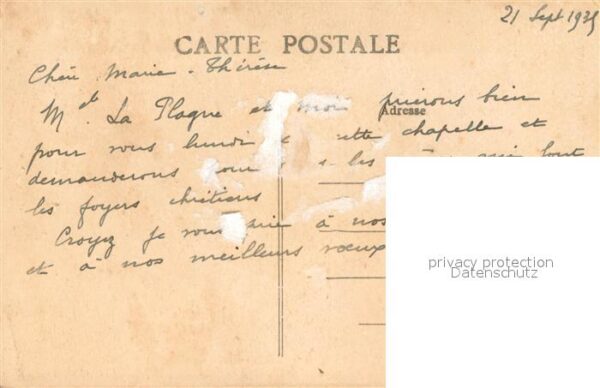 21 Sept 1935
CARTE POSTALE
Chère Marie-Thérèse
Mde La Plagne et moi prierons bien
Adresse
pour vous lundi chapelle et
demanderons les
les foyers chrétiens
Croyez je vous prie à nos
et à nos meilleurs vœux
privacy protection
Datenschutz